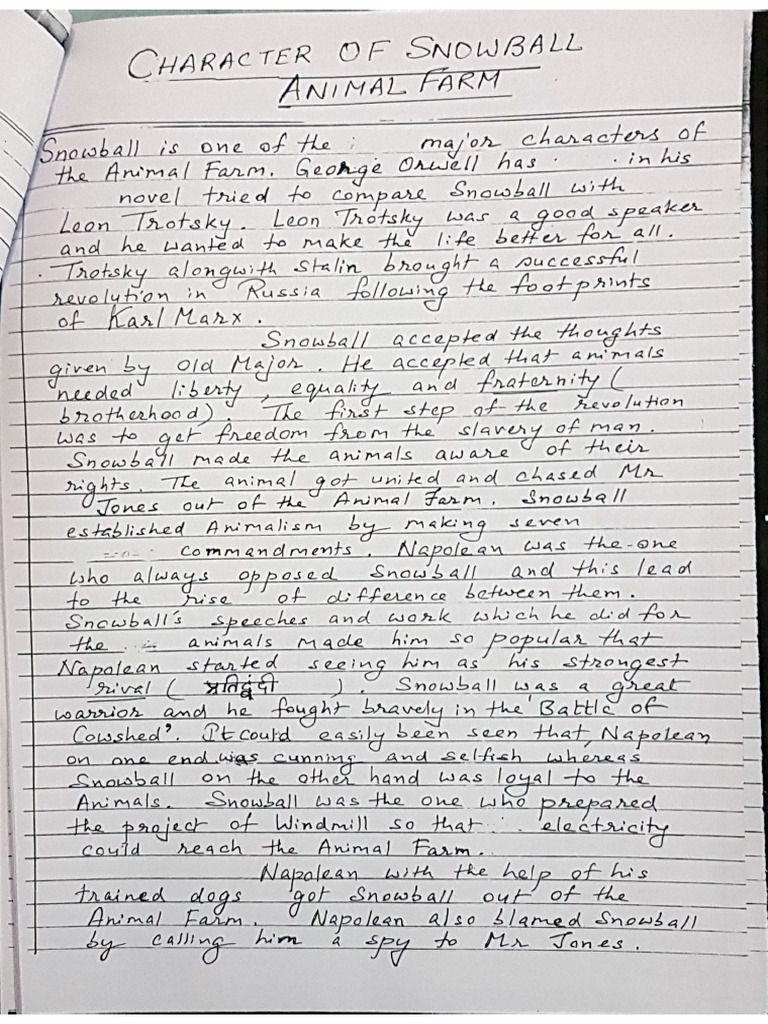 CHARACTER OF SNOWBALL
ANIMAL FARM
Snowball is one of the major characters of
the Animal Farm. George Orwell has in his
novel tried to compare Snowball with
Leon Trotsky. Leon Trotsky was a good speaker
and he wanted to make the life better for all.
Trotsky alongwith Stalin brought a successful
revolution in Russia following the footprints
of Karl Marx.
Snowball accepted the thoughts
given by Old Major. He accepted that animals
needed liberty, equality and fraternity (
brotherhood). The first step of the revolution
was to get freedom from the slavery of man.
Snowball made the animals aware of their
rights. The animal got united and chased Mr
Jones out of the Animal Farm. Snowball
established Animalism by making seven
commandments. Napolean was the one
who always opposed Snowball and this lead
to the rise of difference between them.
Snowball's speeches and work which he did for
the animals made him so popular that
Napolean started seeing him as his strongest
rival (प्रतिद्वंदी). Snowball was a great
warrior and he fought bravely in the 'Battle of
Cowshed'. It could easily been seen that, Napolean
on one end was cunning and selfish whereas
Snowball on the other hand was loyal to the
Animals. Snowball was the one who prepared
the project of Windmill so that electricity
could reach the Animal Farm.
Napolean with the help of his
trained dogs got Snowball out of the
Animal Farm. Napolean also blamed Snowball
by calling him a spy to Mr Jones.